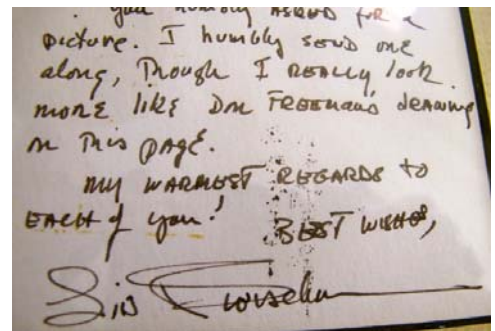 . You humbly ASKED for a
picture. I humbly send one
along, Though I REALLY look
more like Don FREEMAN'S drawing
on This page.
My WARMEST REGARDS to
EACH of you!
BEST WISHES,
Sid